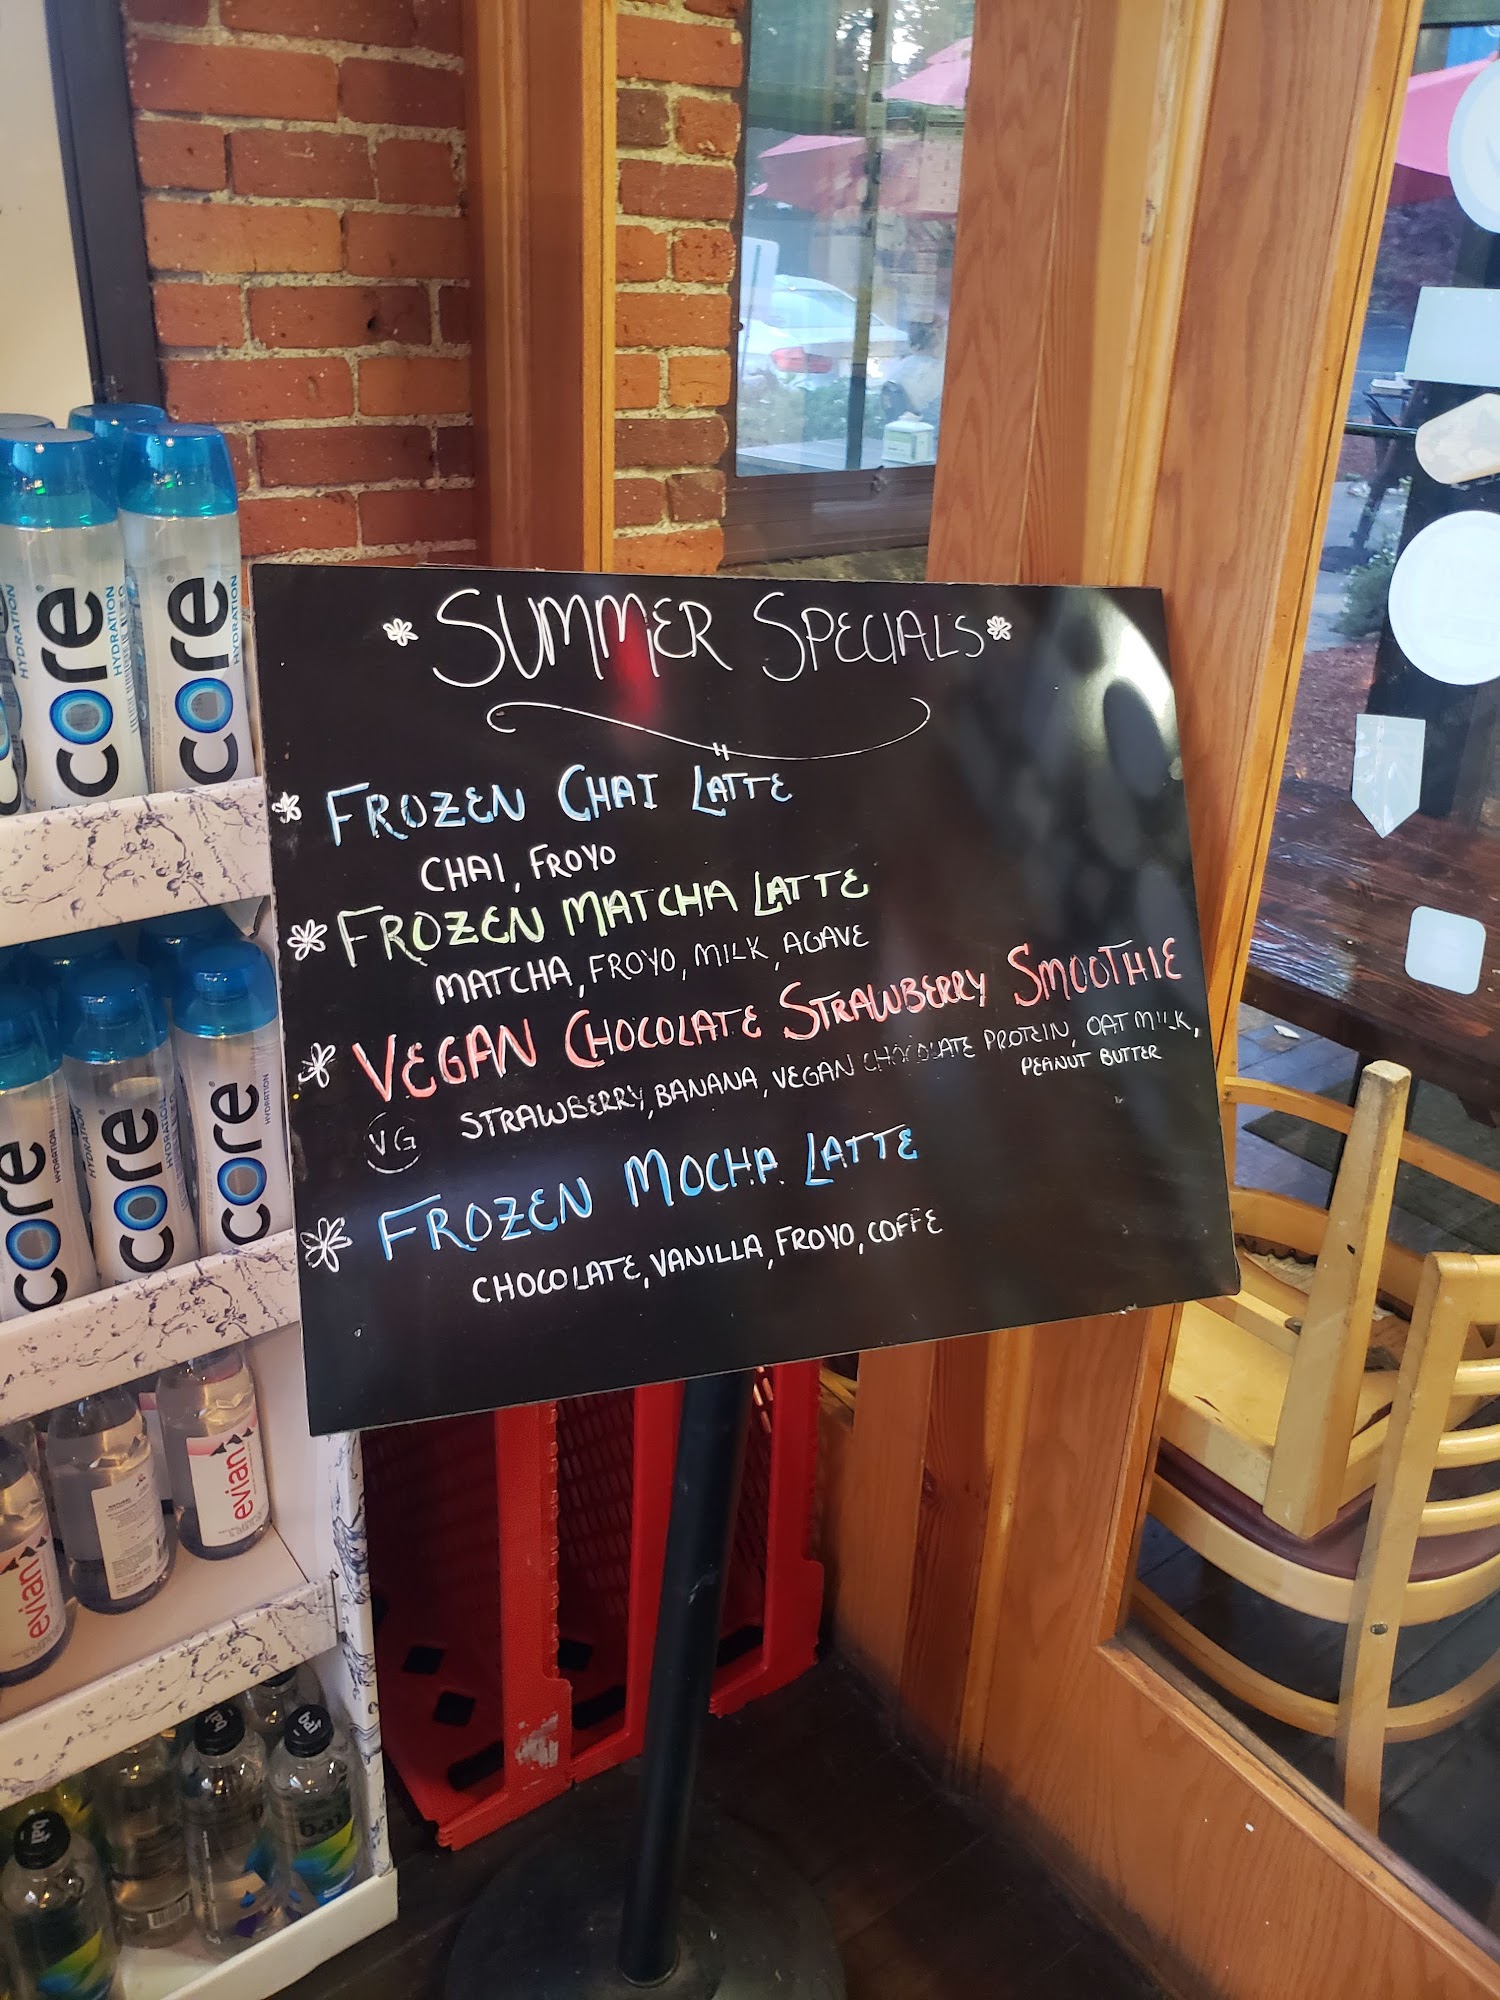 SUMMER SPECIALS
FROZEN CHAI LATTE
CHAI, FROYO
FROZEN MATCHA LATTE
MATCHA, FROYO, MILK, AGAVE
VEGAN CHOCOLATE STRAWBERRY SMOOTHIE
VG
STRAWBERRY, BANANA, VEGAN CHOCOLATE PROTEIN, OAT MILK,
PEANUT BUTTER
FROZEN MOCHA LATTE
CHOCOLATE, VANILLA, FROYO, COFFE
core
HYDRATION
core
HYDRATION
core
HYDRATION
core
HYDRATION
core
HYDRATION
evian
evian
bai
bai
bai
bai